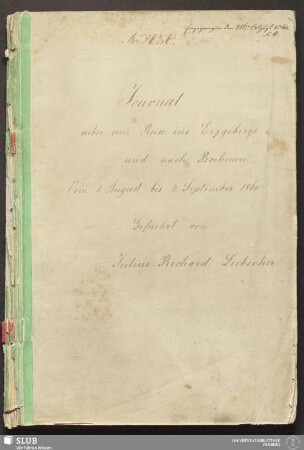 Journal
ueber eine Reise ins Erzgebirge
und nach Boehmen
Vom 1 August bis 2 September 1860
Gefuehrt von
Julius Richard Liebscher
SLUB
Wir führen Wissen.
UNIVERSITÄTSBIBLIOTHEK
FREIBERG